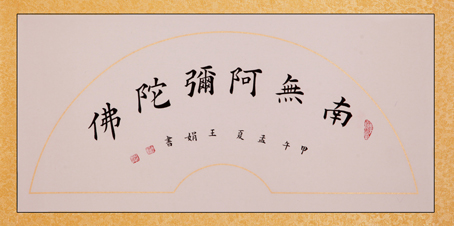 南無阿彌陀佛
甲午孟夏王娟書